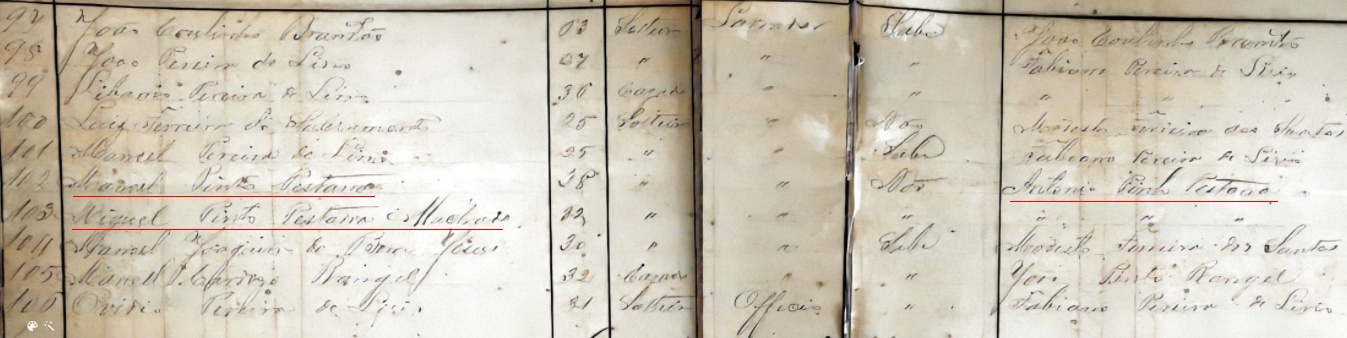 João Coutinho Brandão Solteiro Lavrador Sabe João Coutinho Brandão
98 João Pereira de Lirio 27 " " " Fabiano Pereira de Lirio
99 Pereira de Lirio 36 Casado " " " "
100 Luiz Ferreira do Sacramento 25 Solteiro " Não Modesto Ferreira dos Santos
101 Manoel Pereira de Lirio 25 " " Sabe Fabiano Pereira de Lirio
102 Manoel Pinto Pestana 38 " " Não Antonio Pinto Pestana
103 Miguel Pinto Pestana Machado 22 " " " " " "
104 Manoel Joaquim do Bom Jesus 30 " " Sabe Modesto Ferreira dos Santos
105 Manoel Rangel 32 Casado " João Pinto Rangel
106 Ovidio Pereira de Lirio 21 Solteiro Officio " Fabiano Pereira de Lirio